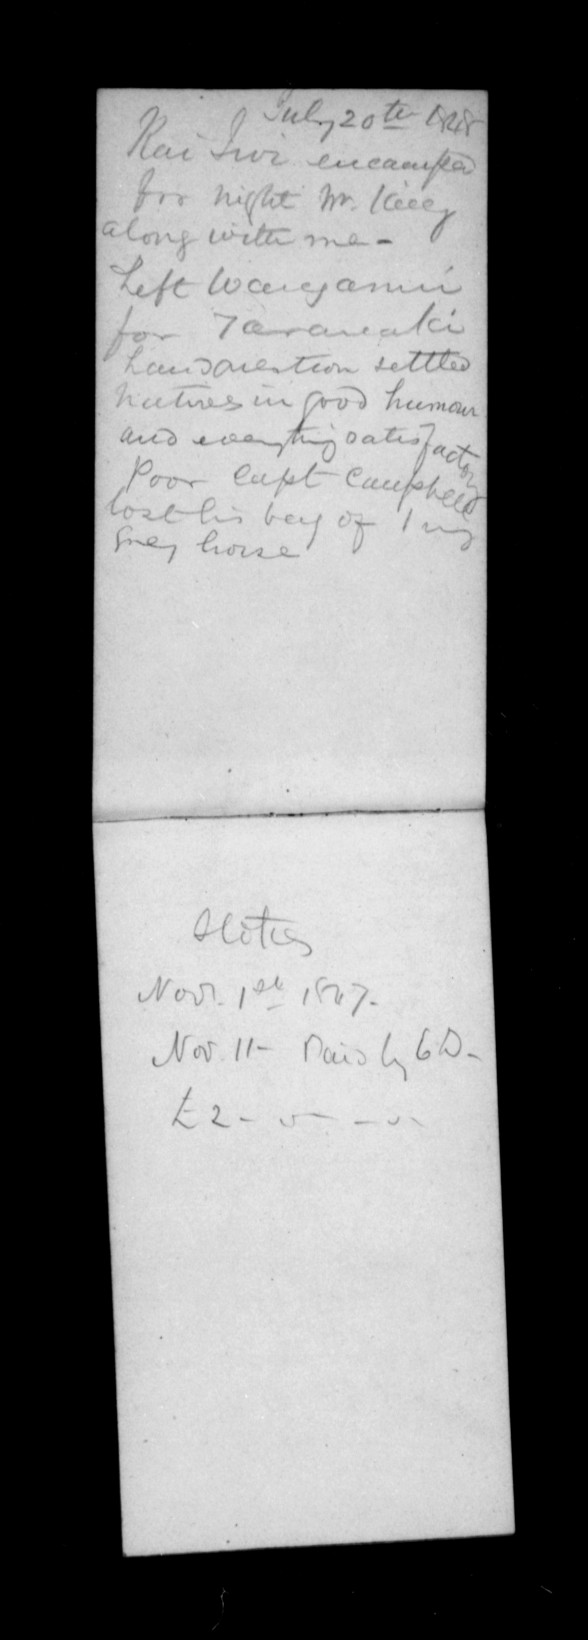 July 20th 1848
Kai Iwi encamped
for night Mr. Kelly
along with me -
Left Wanganui
for Taranaki
Land question settled
Natives in good humour
and everything satisfactory
Poor Capt Campbell
lost his bay & I my
Grey horse
Novr. 1st 1847.
Nov. 11 - Paid by
£ 2 -